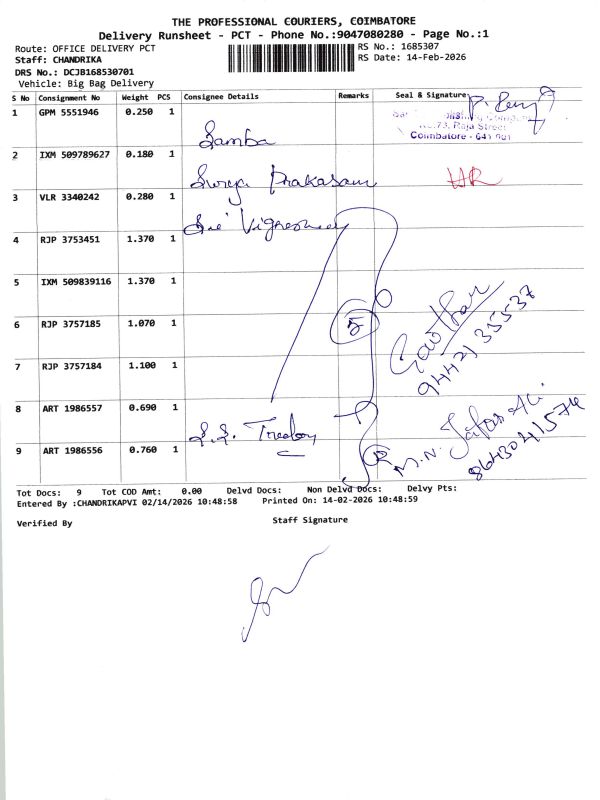 THE PROFESSIONAL COURIERS, COIMBATORE
Delivery Runsheet - PCT - Phone No.:9047080280 - Page No.:1
Route: OFFICE DELIVERY PCT
RS No.: 1685307
Staff: CHANDRIKA
RS Date: 14-Feb-2026
DRS No.: DCJB168530701
Vehicle: Big Bag Delivery
S No Consignment No Weight PCS Consignee Details Remarks Seal & Signature
1 GPM 5551946 0.250 1 Samba
No.73, Raja Street
Coimbatore - 641 001
2 IXM 509789627 0.180 1 Surya Prakasam HR
3 VLR 3340242 0.280 1 Sri
4 RJP 3753451 1.370 1
5 IXM 509839116 1.370 1
6 RJP 3757185 1.070 1 5
7 RJP 3757184 1.100 1
94421 35537
8 ART 1986557 0.690 1 S.S.
M.N.
9 ART 1986556 0.760 1
Tot Docs: 9 Tot COD Amt: 0.00 Delvd Docs: Non Delvd Docs: Delvy Pts:
Entered By :CHANDRIKAPVI 02/14/2026 10:48:58 Printed On: 14-02-2026 10:48:59
Verified By Staff Signature